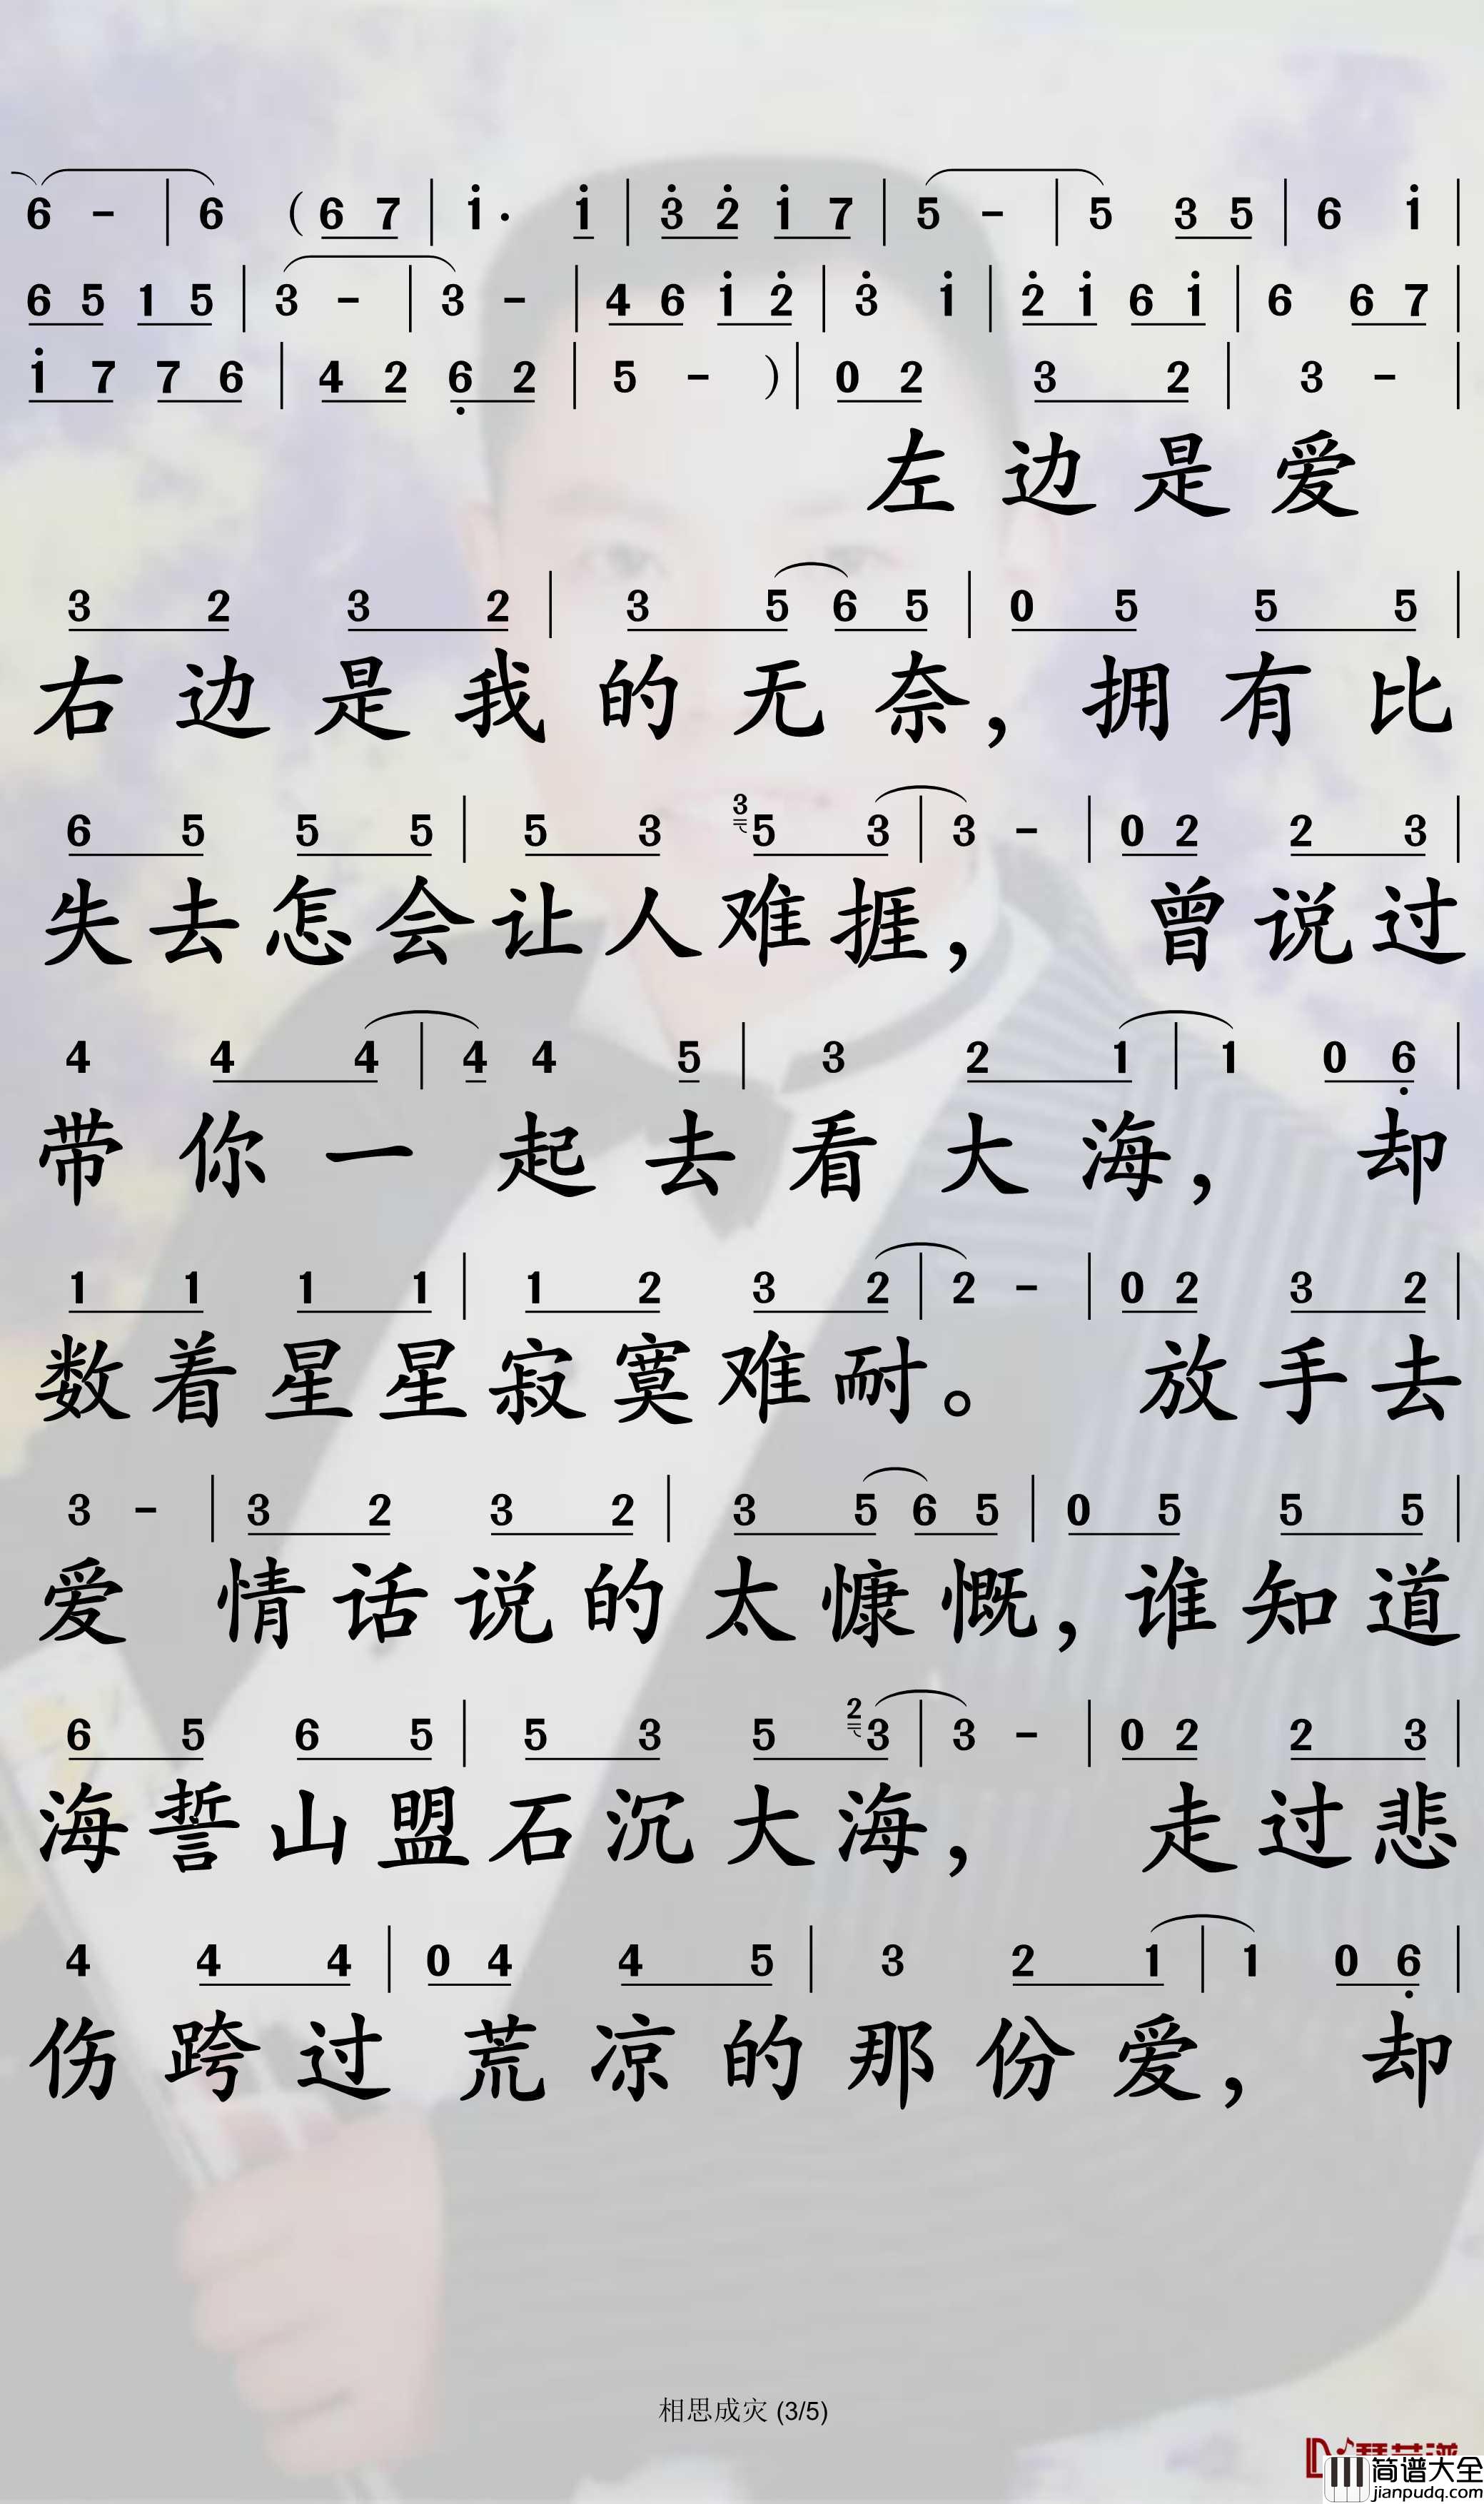 6 - | 6 (6 7 | i· i | 3̇ 2̇ i 7 | 5 - | 5 3 5 | 6 i |
6 5 1 5 | 3 - | 3 - | 4 6 i 2̇ | 3̇ i | 2̇ i 6 i | 6 6 7 |
i 7 7 6 | 4 2 6̣ 2 | 5 - ) | 0 2 3 2 | 3 - |
左边是爱
3 2 3 2 | 3 5 6 5 | 0 5 5 5 |
右边是我的无奈，拥有比
6 5 5 5 | 5 3 3 5 3 | 3 - | 0 2 2 3 |
失去怎会让人难捱，曾说过
4 4 4 | 4 4 5 | 3 2 1 | 1 0 6̣ |
带你一起去看大海，却
1 1 1 1 | 1 2 3 2 | 2 - | 0 2 3 2 |
数着星星寂寞难耐。放手去
3 - | 3 2 3 2 | 3 5 6 5 | 0 5 5 5 |
爱情话说的太慷慨，谁知道
6 5 6 5 | 5 3 5 2 3 | 3 - | 0 2 2 3 |
海誓山盟石沉大海，走过悲
4 4 4 | 0 4 4 5 | 3 2 1 | 1 0 6̣ |
伤跨过荒凉的那份爱，却
相思成灾 (3/5)
简谱大全
jianpudq.com